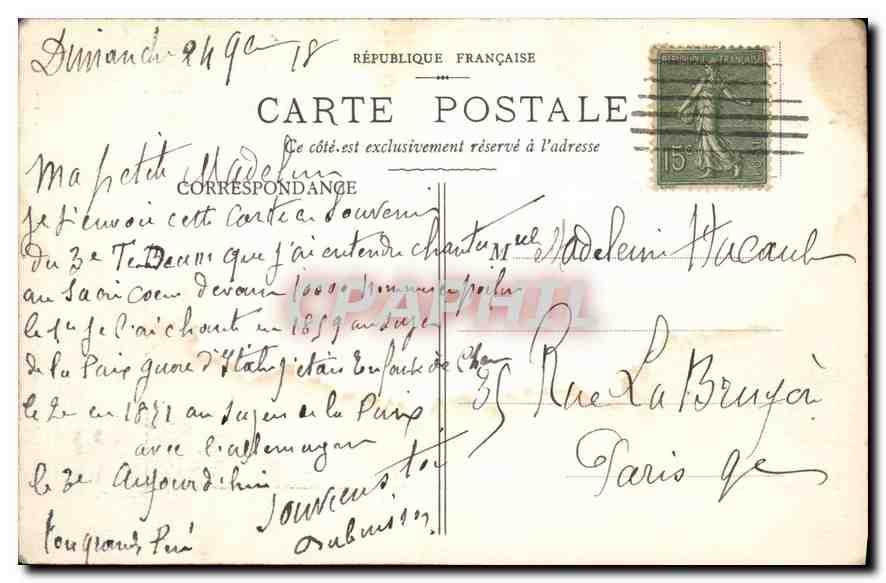 Dimanche 24 9bre 18
RÉPUBLIQUE FRANÇAISE
CARTE POSTALE
Ce côté est exclusivement réservé à l'adresse
RÉPUBLIQUE FRANÇAISE
15c
POSTES
Ma petite Madeleine
CORRESPONDANCE
je t'envoie cette Carte en Souvenir
du 3e Te Deum que j'ai entendu chanter
au Sacré Coeur devant 10000 hommes poilus
le 1er je l'ai chanté en 1859 au sujet
de la Paix guerre d'Italie j'étais Enfant de Choeur
le 2e en 1871 au sujet de la Paix
avec l'allemagne
le 3e Aujourd'hui
Souviens toi
ton grand Père
Dubuisson
Mlle Madeleine Hucault
35 Rue La Bruyère
Paris 9e
CPAPHIL